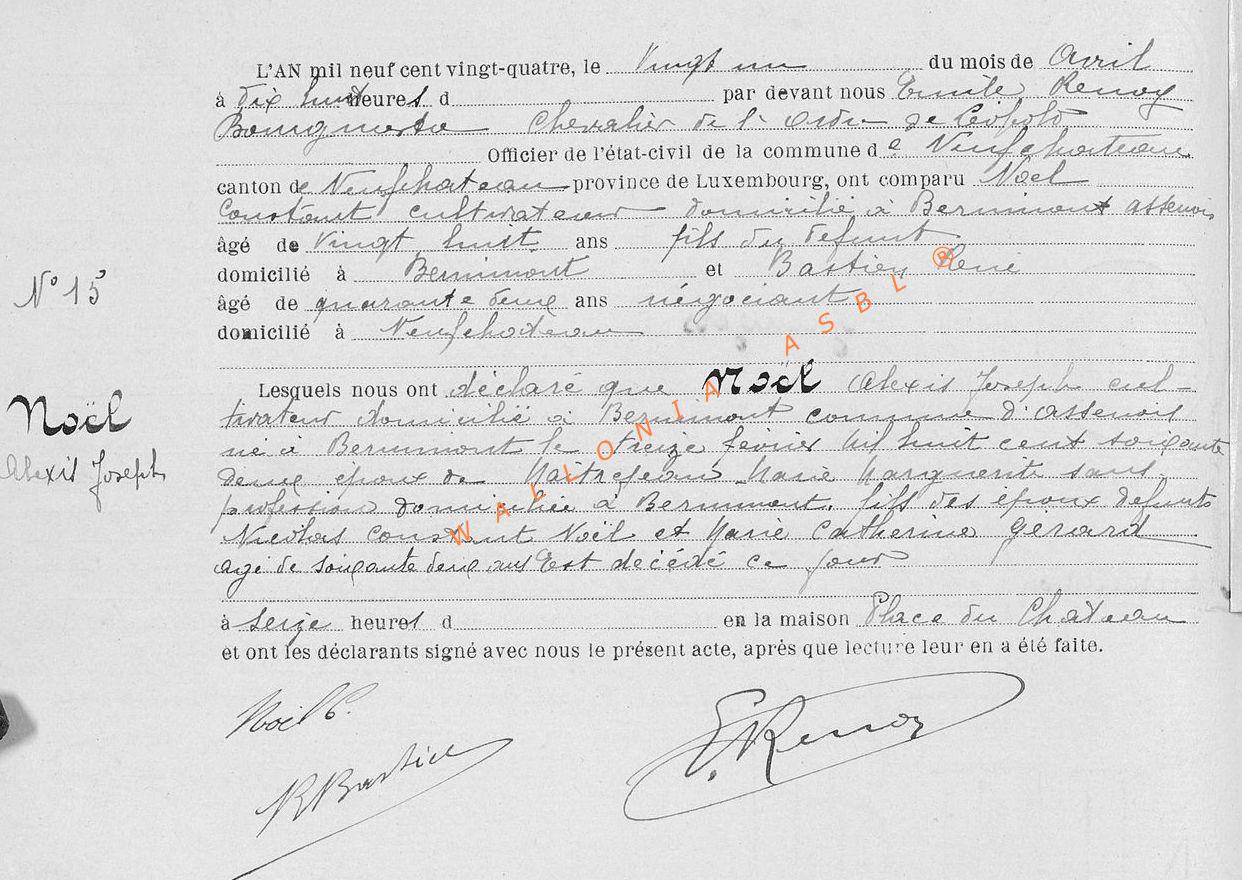 L'AN mil neuf cent vingt-quatre, le Vingt un du mois de Avril
à dix huit heures d par devant nous Emile Renoy
Bourgmestre Chevalier de l'Ordre de Léopold
Officier de l'état-civil de la commune de Neufchateau
canton de Neufchateau province de Luxembourg, ont comparu Noël
Constant cultivateur domicilié à Bernimont assenois
âgé de vingt huit ans fils du défunt
domicilié à Bernimont et Bastien René
âgé de quarante deux ans négociant
domicilié à Neufchateau
N° 15
Lesquels nous ont déclaré que Noël Alexis Joseph cul-
tivateur domicilié à Bernimont commune d'assenois
né à Bernimont le treize février mil huit cent soixante
deux époux de Maitrejean Marie Marguerite sans
profession domiciliée à Bernimont. fils des époux défunts
Nicolas Constant Noël et Marie Catherine Gérard
agé de soixante deux ans Est décédé ce jour
Noël
Alexis Joseph
à seize heures d en la maison Place du Chateau
et ont les déclarants signé avec nous le présent acte, après que lecture leur en a été faite.
Noël C.
R Bastien
E. Renoy
WALLONIA ASBL ®